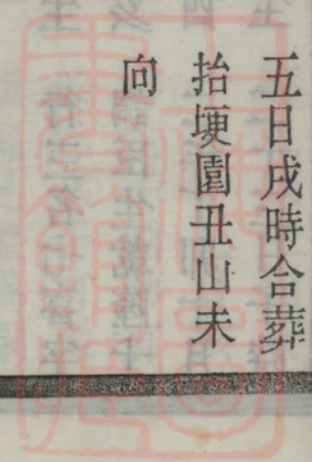 五日戌時合葬
抬埂園丑山未
向